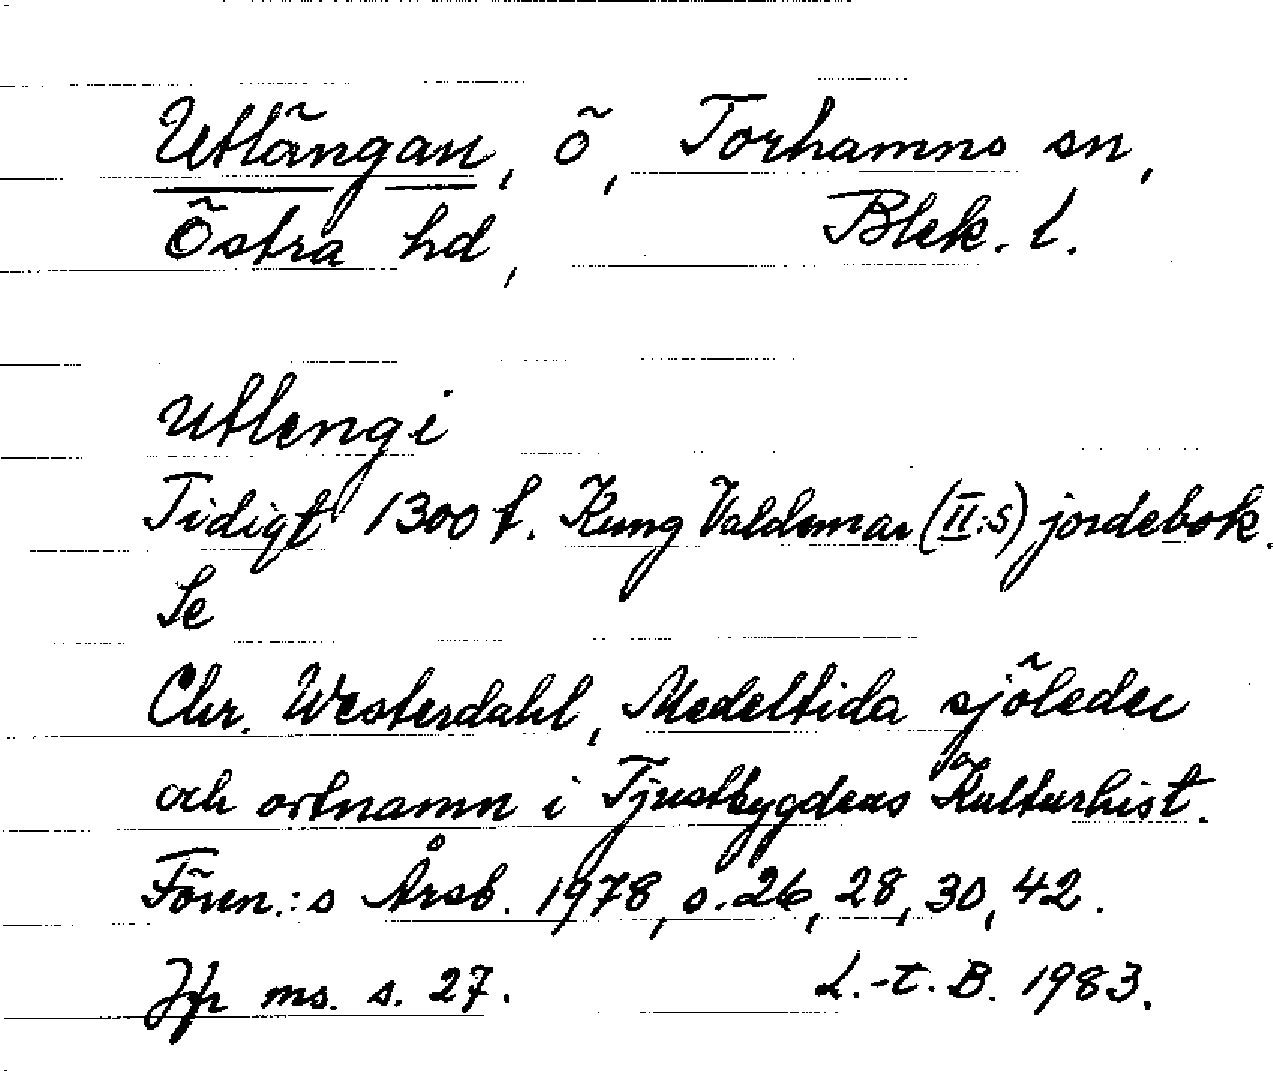 Utlängan, ö, Torhamns sn,
Östra hd, Blek. l.
Utlengi
Tidigt 1300 t. Kung Valdemar (II:s) jordebok.
Se
Chr. Westerdahl, Medeltida sjöleder
och ortnamn i Tjustbygdens Kulturhist.
Fören.:s Årsb. 1978, s. 26, 28, 30, 42.
Jfr ms. s. 27. L.-t. B. 1983.